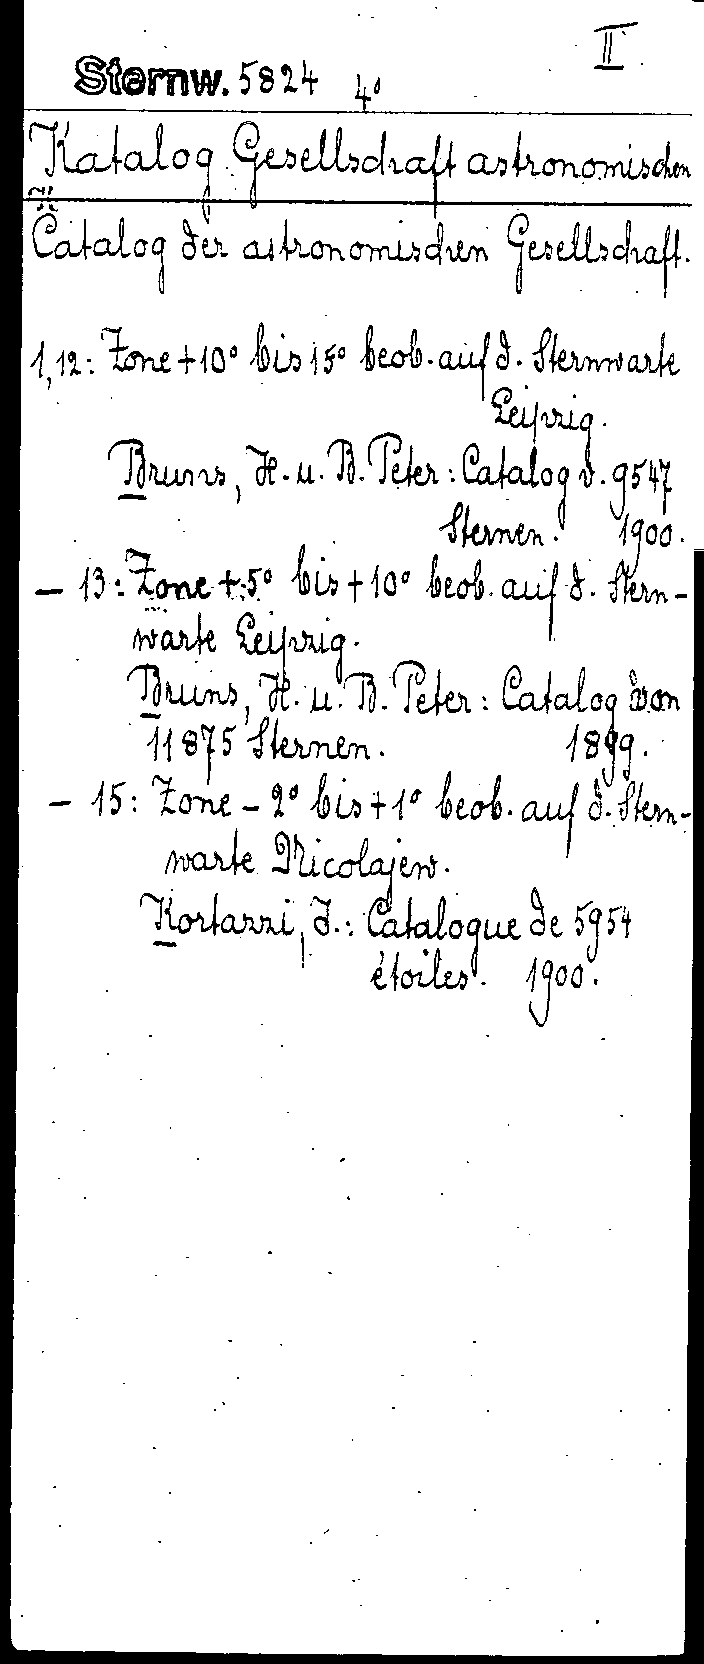 II.
Sternw. 5824 4°
Katalog Gesellschaft astronomischen
K
Catalog der astronomischen Gesellschaft.
1,12: Zone +10° bis 15° beob. auf d. Sternwarte
Leipzig.
Bruns, H. u. B. Peter: Catalog v. 9547
Sternen. 1900.
— 13: Zone + 5° bis + 10° beob. auf d. Stern-
warte Leipzig.
Bruns, H. u. B. Peter: Catalog von
11875 Sternen. 1899.
— 15: Zone – 2° bis + 1° beob. auf d. Stern-
warte Nicolajew.
Kortazzi, J.: Catalogue de 5954
étoiles. 1900.